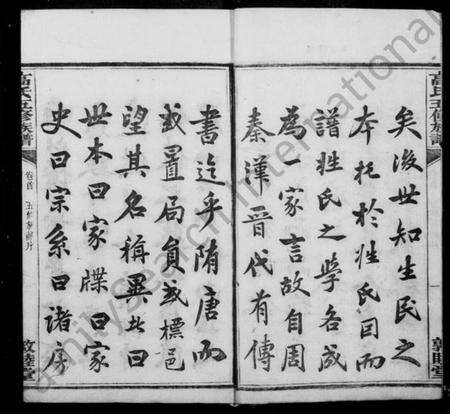 高氏五修族譜
矣後世知生民之
本托於姓氏因而
譜姓氏之學各成
為一家言故自周
秦漢晉代有傳
敦睦堂
書迄乎隋唐而
或置局員或標邑
望其名稱異者曰
世本曰家牒曰家
史曰宗系曰諸房
高氏五修族譜
卷首
敦睦堂
FamilySearch International